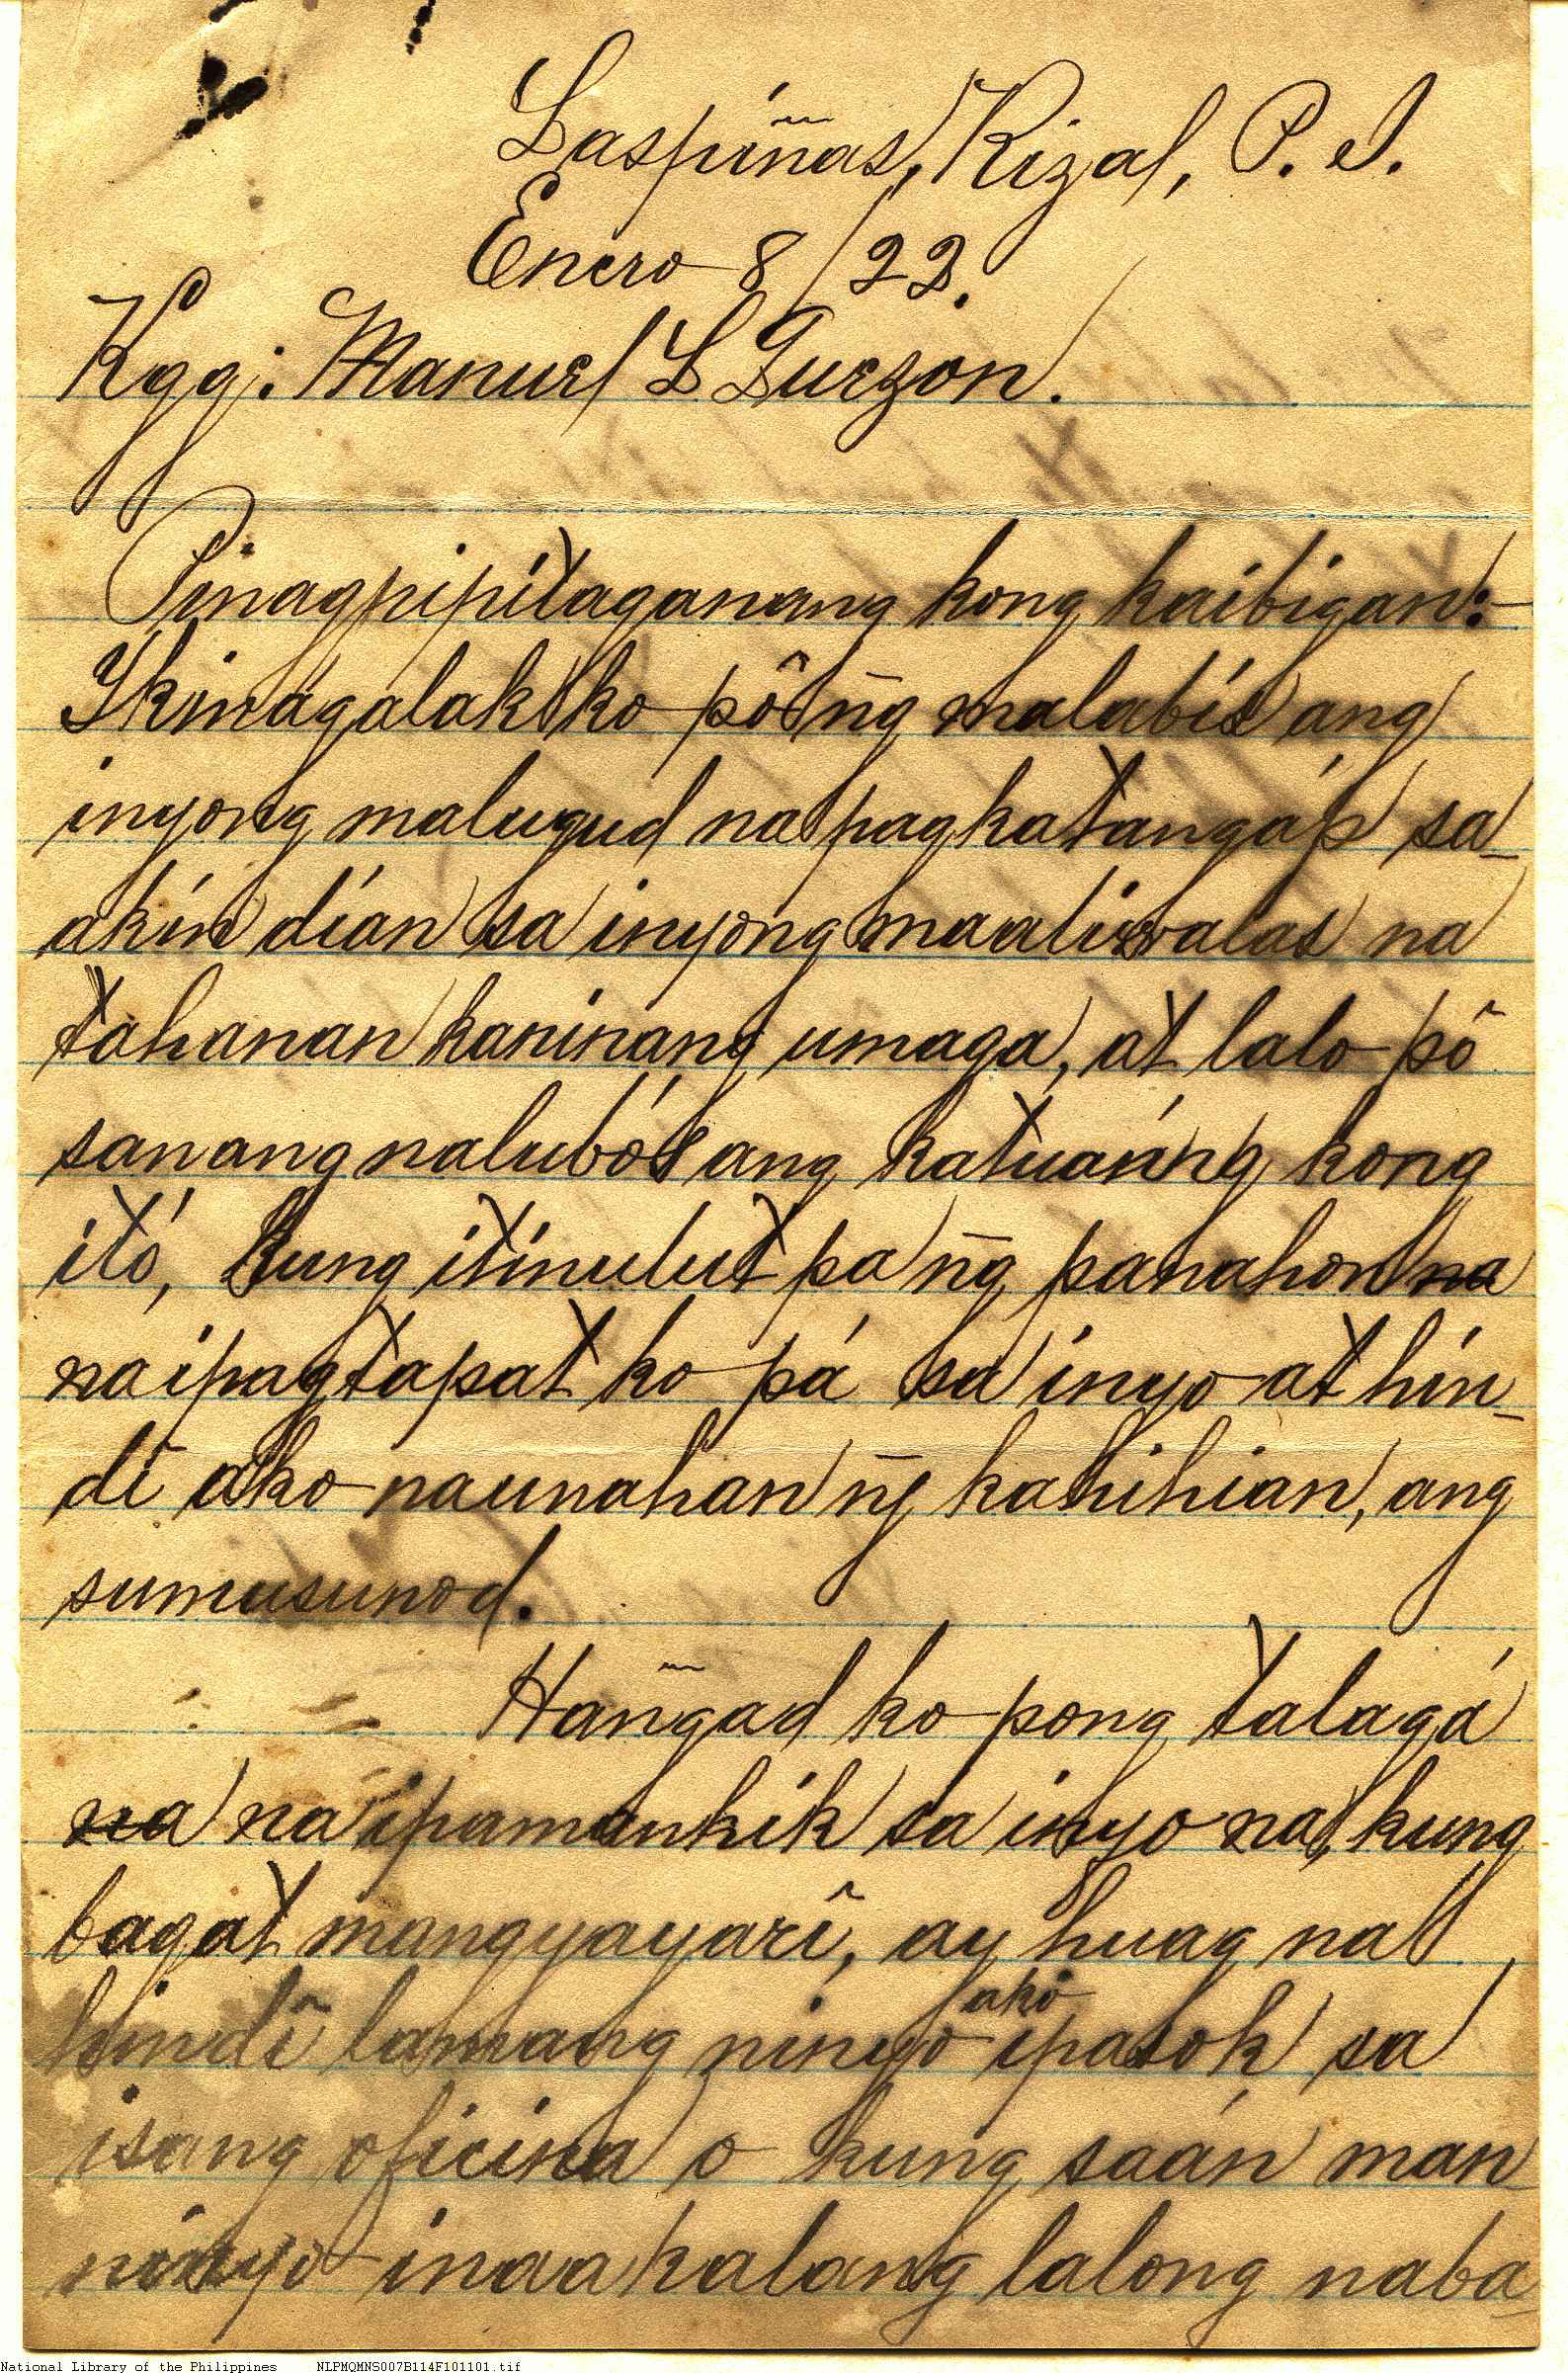 Laspiñas, Rizal, P. I.
Enero 8/22.
Kgg: Manuel L Quezon.
Pinagpipitaganang kong kaibigan:-
Ykinagalak ko pô n̄g malabis ang
inyong malugud na pagkatangáp sa-
akin dian sa inyong maaliwalas na
tahanan kaninang umaga, at lalo pô
sanang nalubós ang katuaáng kong
itó, kung itinulut pa n̄g panahon na
na ipagtapat ko pá sa inyo at hin-
dî ako naunahan n̄g kahihian, ang
sumusunod.
Han̄gad ko pong talagá
na na ipamankik sa inyo na, kung
bagat mangyayarî, ay huag na
hindî lamang ninyo akó ipasok sa
isang oficina o kung saán man
ninyo inaakalang lalong naba-
National Library of the Philippines NLPMQMNS007B114F101101.tif